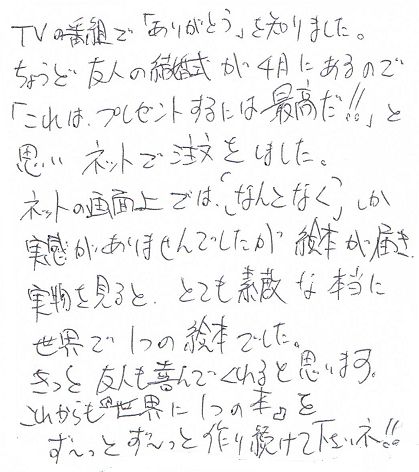 TVの番組で「ありがとう」を知りました。
ちょうど友人の結婚式が4月にあるので
「これは、プレゼントするには最高だ!!」と
思い ネットで注文をしました。
ネットの画面上では、「なんとなく」しか
実感がありませんでしたが 絵本が届き、
実物を見ると、とても素敵な本当に
世界で1つの絵本でした。
きっと友人も喜んでくれると思います。
これからも『世界に1つの本』を
ず～っとず～っと作り続けて下さいネ!!